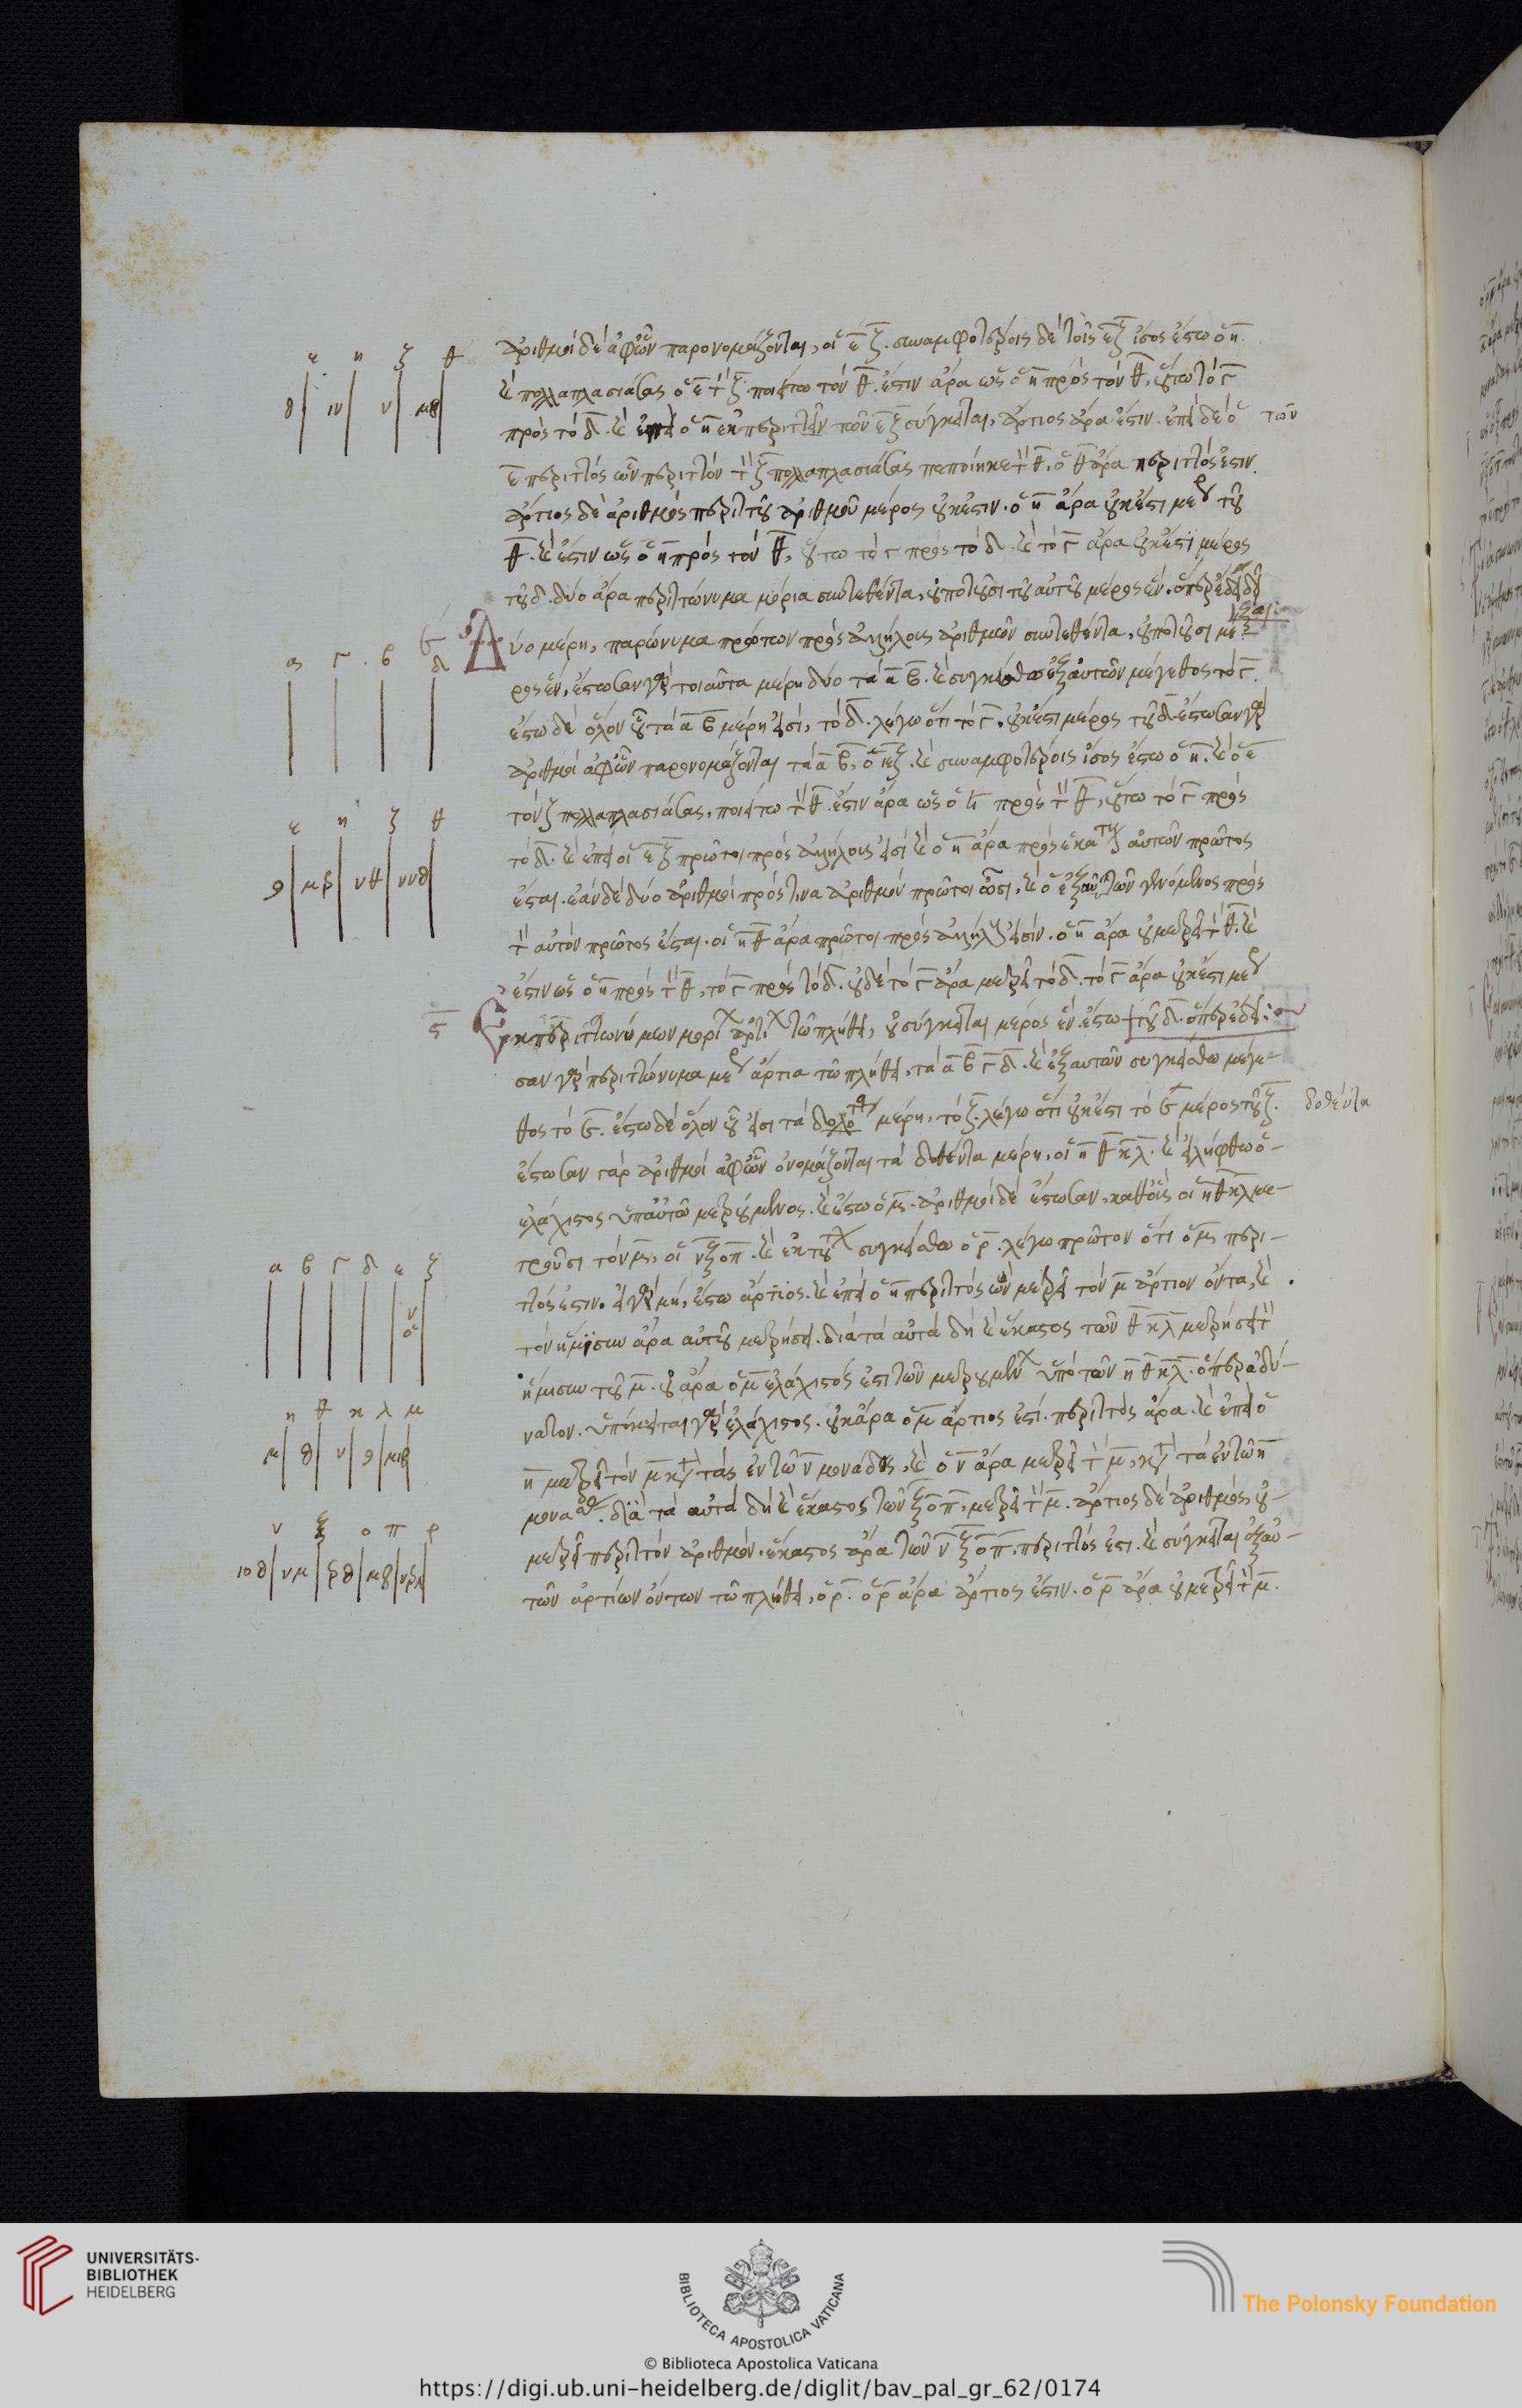 ἀριθμοὶ δὲ ἀφ' ὧν παρονομάζονται, οἱ ε ζ. συναμφοτέροις δὲ τοῖς ε ζ ἴσος ἔστω ὁ η.
καὶ πολλαπλασιάσας ὁ ε τὸν ζ ποιείτω τὸν θ. ἔστιν ἄρα ὡς ὁ η πρὸς τὸν θ, οὕτω τὸ γ
πρὸς τὸ δ. καὶ ἐπεὶ ὁ η ἐκ περιττῶν τῶν ε ζ σύγκειται, ἄρτιος ἄρα ἐστίν. ἐπεὶ δὲ ὁ τῶν
ε περιττὸς ὢν περιττὸν τὸν ζ πολλαπλασιάσας πεποίηκε τὸν θ, ὁ θ ἄρα περιττός ἐστιν.
ἄρτιος δὲ ἀριθμὸς περιττοῦ ἀριθμοῦ μέρος οὐκ ἔστιν. ὁ η ἄρα οὐκ ἔστι μέρος τοῦ
θ. καὶ ἔστιν ὡς ὁ η πρὸς τὸν θ, οὕτω τὸ γ πρὸς τὸ δ. καὶ τὸ γ ἄρα οὐκ ἔστι μέρος
τοῦ δ. δύο ἄρα περιττώνυμα μόρια συντεθέντα, οὐ ποιοῦσι τοῦ αὐτοῦ μέρος ἕν. ὅπερ ἔδει δεῖ
ξαι:
ε Δύο μέρη, παρώνυμα πρώτων πρὸς ἀλλήλους ἀριθμῶν συντεθέντα, οὐ ποιοῦσι μέ
ρος ἕν, ἔστωσαν γὰρ τοιαῦτα μέρη δύο τὰ α β. καὶ συγκείσθω ἐξ αὐτῶν μέγεθος τὸ γ.
ἔστω δὲ ὅλον οὗ τὰ α β μέρη εἰσὶ, τὸ δ. λέγω ὅτι τὸ γ, οὐκ ἔστι μέρος τοῦ δ. ἔστωσαν γὰρ
ἀριθμοὶ ἀφ' ὧν παρονομάζονται τὰ α β, ὁ ε ζ. καὶ συναμφοτέροις ἴσος ἔστω ὁ η. καὶ ὁ ε
τὸν ζ πολλαπλασιάσας, ποιείτω τὸν θ. ἔστιν ἄρα ὡς ὁ η πρὸς τὸν θ, οὕτω τὸ γ πρὸς
τὸ δ. καὶ ἐπεὶ οἱ ε ζ πρῶτοι πρὸς ἀλλήλους εἰσὶ καὶ ὁ η ἄρα πρὸς ἑκάτερον αὐτῶν πρῶτος
ἔσται. ἐὰν δὲ δύο ἀριθμοὶ πρός τινα ἀριθμὸν πρῶτοι ὦσι, καὶ ὁ ἐξ αὐτῶν γενόμενος πρὸς
τὸν αὐτὸν πρῶτος ἔσται. οἱ η θ ἄρα πρῶτοι πρὸς ἀλλήλους εἰσίν. ὁ η ἄρα οὐ μετρεῖ τὸν θ. καὶ
ἔστιν ὡς ὁ η πρὸς τὸν θ, τὸ γ πρὸς τὸ δ. οὐδὲ τὸ γ ἄρα μετρεῖ τὸ δ. τὸ γ ἄρα οὐκ ἔστι μέρος
τοῦ δ. ὅπερ ἔδει:
ϛ Ἐκ περιττωνύμων μορίων ἀρτίων τῷ πλήθει, οὐ σύγκειται μέρος ἕν. ἔστω
σαν γὰρ περιττώνυμα μέρη ἄρτια τῷ πλήθει, τὰ α β γ δ. καὶ ἐξ αὐτῶν συγκείσθω μέγε-
θος τὸ ε. ἔστω δὲ ὅλον οὗ εἰσι τὰ μέρη, τὸ ζ. λέγω ὅτι οὐκ ἔστι τὸ ε μέρος τοῦ ζ. δοθέντα
ἔστωσαν γὰρ ἀριθμοὶ ἀφ' ὧν ὀνομάζονται τὰ δοθέντα μέρη, οἱ η θ κ λ. καὶ εἰλήφθω ὁ
ἐλάχιστος ὑπ' αὐτῶν μετρούμενος. καὶ ἔστω ὁ μ. ἀριθμοὶ δὲ ἔστωσαν, καθ' οὓς οἱ η θ κ λ με-
τροῦσι τὸν μ, οἱ ν ξ ο π. καὶ ἐκ τούτων συγκείσθω ὁ ρ. λέγω πρῶτον ὅτι ὁ μ περι-
ττός ἐστιν. εἰ γὰρ μή, ἔστω ἄρτιος. καὶ ἐπεὶ ὁ η περιττὸς ὢν μετρεῖ τὸν μ ἄρτιον ὄντα, καὶ
τὸν ἥμισυν ἄρα αὐτοῦ μετρήσει. διὰ τὰ αὐτὰ δὴ καὶ ἕκαστος τῶν θ κ λ μετρήσει τὸν
ἥμισυν τοῦ μ. οὐ ἄρα ὁ μ ἐλάχιστός ἐστι τῶν μετρουμένων ὑπὸ τῶν η θ κ λ. ὅπερ ἀδύ-
νατον. ὑπόκειται γὰρ ἐλάχιστος. οὐκ ἄρα ὁ μ ἄρτιος ἐστί. περιττὸς ἄρα. καὶ ἐπεὶ ὁ
η μετρεῖ τὸν μ κατὰ τὰς ἐν τῷ ν μονάδας, καὶ ὁ ν ἄρα μετρεῖ τὸν μ, κατὰ τὰ ἐν τῷ η
μονάδας. διὰ τὰ αὐτὰ δὴ καὶ ἕκαστος τῶν ξ ο π, μετρεῖ τὸν μ. ἄρτιος δὲ ἀριθμὸς, οὐ
μετρεῖ περιττὸν ἀριθμόν. ἕκαστος ἄρα τῶν ν ξ ο π, περιττός ἐστι. καὶ σύγκειται ἐξ αὐ-
τῶν ἀρτίων ὄντων τῷ πλήθει, ὁ ρ. ὁ ρ ἄρα ἄρτιος ἐστιν. ὁ ρ ἄρα οὐ μετρεῖ τὸν μ.
ε η ζ θ
α γ β δ
ε η ζ θ
α β γ δ ε ζ
η θ κ λ μ
ν ξ ο π ρ
UNIVERSITÄTS-
BIBLIOTHEK
HEIDELBERG
BIBLIOTECA APOSTOLICA VATICANA
The Polonsky Foundation
© Biblioteca Apostolica Vaticana
https://digi.ub.uni-heidelberg.de/diglit/bav_pal_gr_62/0174